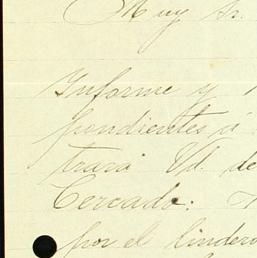 Muy Sr.
Informe y
pondientes á
trará Vd. de
Cercado:
por el lindero